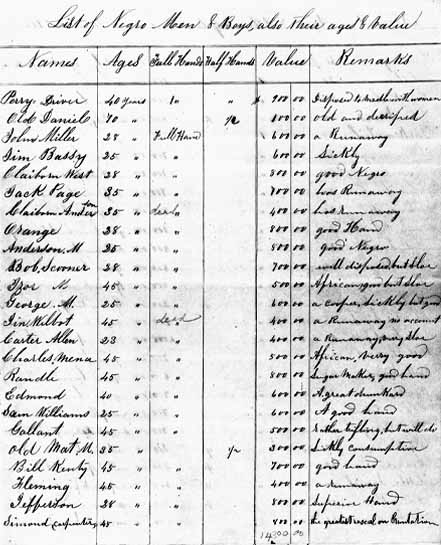 List of Negro Men & Boys, also their ages & Value
Names Ages Full Hands Half Hands Value Remarks
Perry Driver 40 years 1 " " $ 900 00 Disposed to meddle with women
Old Daniel 70 " 1/2 100 00 old and decrepid
John Miller 28 " Full Hand 600 00 a Runaway
Jim Bassy 25 " " 600 00 Sickly
Claiborn West 28 " " 800 00 good Negro
Jack Page 35 " " 700 00 has Runaway
Claiborn Anderson 35 dead " 400 00 has run away
Orange 28 " " 800 00 good Hand
Anderson, M 25 " " 800 00 good Negro
Bob, Scooner 28 " " 700 00 well disposed but slow
45 " " 500 00 African, good but slow
George M. 25 " " 600 00 a cooper, sickly but good
Jim Wilbot 45 dead " 400 00 a Runaway no account
Carter Allen 23 " " 400 00 a Runaway, very slow
Charles, Mena 45 " " 500 00 African, very good
Randle 45 " " 800 00 Sugar Maker, good hand
Edmond 40 " " 600 00 A great drunkard
Sam Williams 25 " " 600 00 A good hand
Gallant 45 " " 500 00 rather trifling, but will do
Old Mat, M. 35 " 1/2 300 00 Sickly consumptive
Bill Kenty 45 " " 700 00 good hand
Fleming 45 " " 400 00 a runaway
Jefferson 28 " " 800 00 Superior Hand
Simond (carpenter) 45 " " 800 00 the greatest rascal on Plantation
14300 00